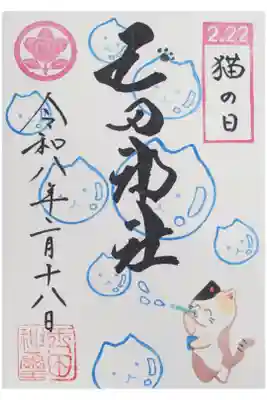 2.22
猫の日
玉田神社
令和八年二月十八日